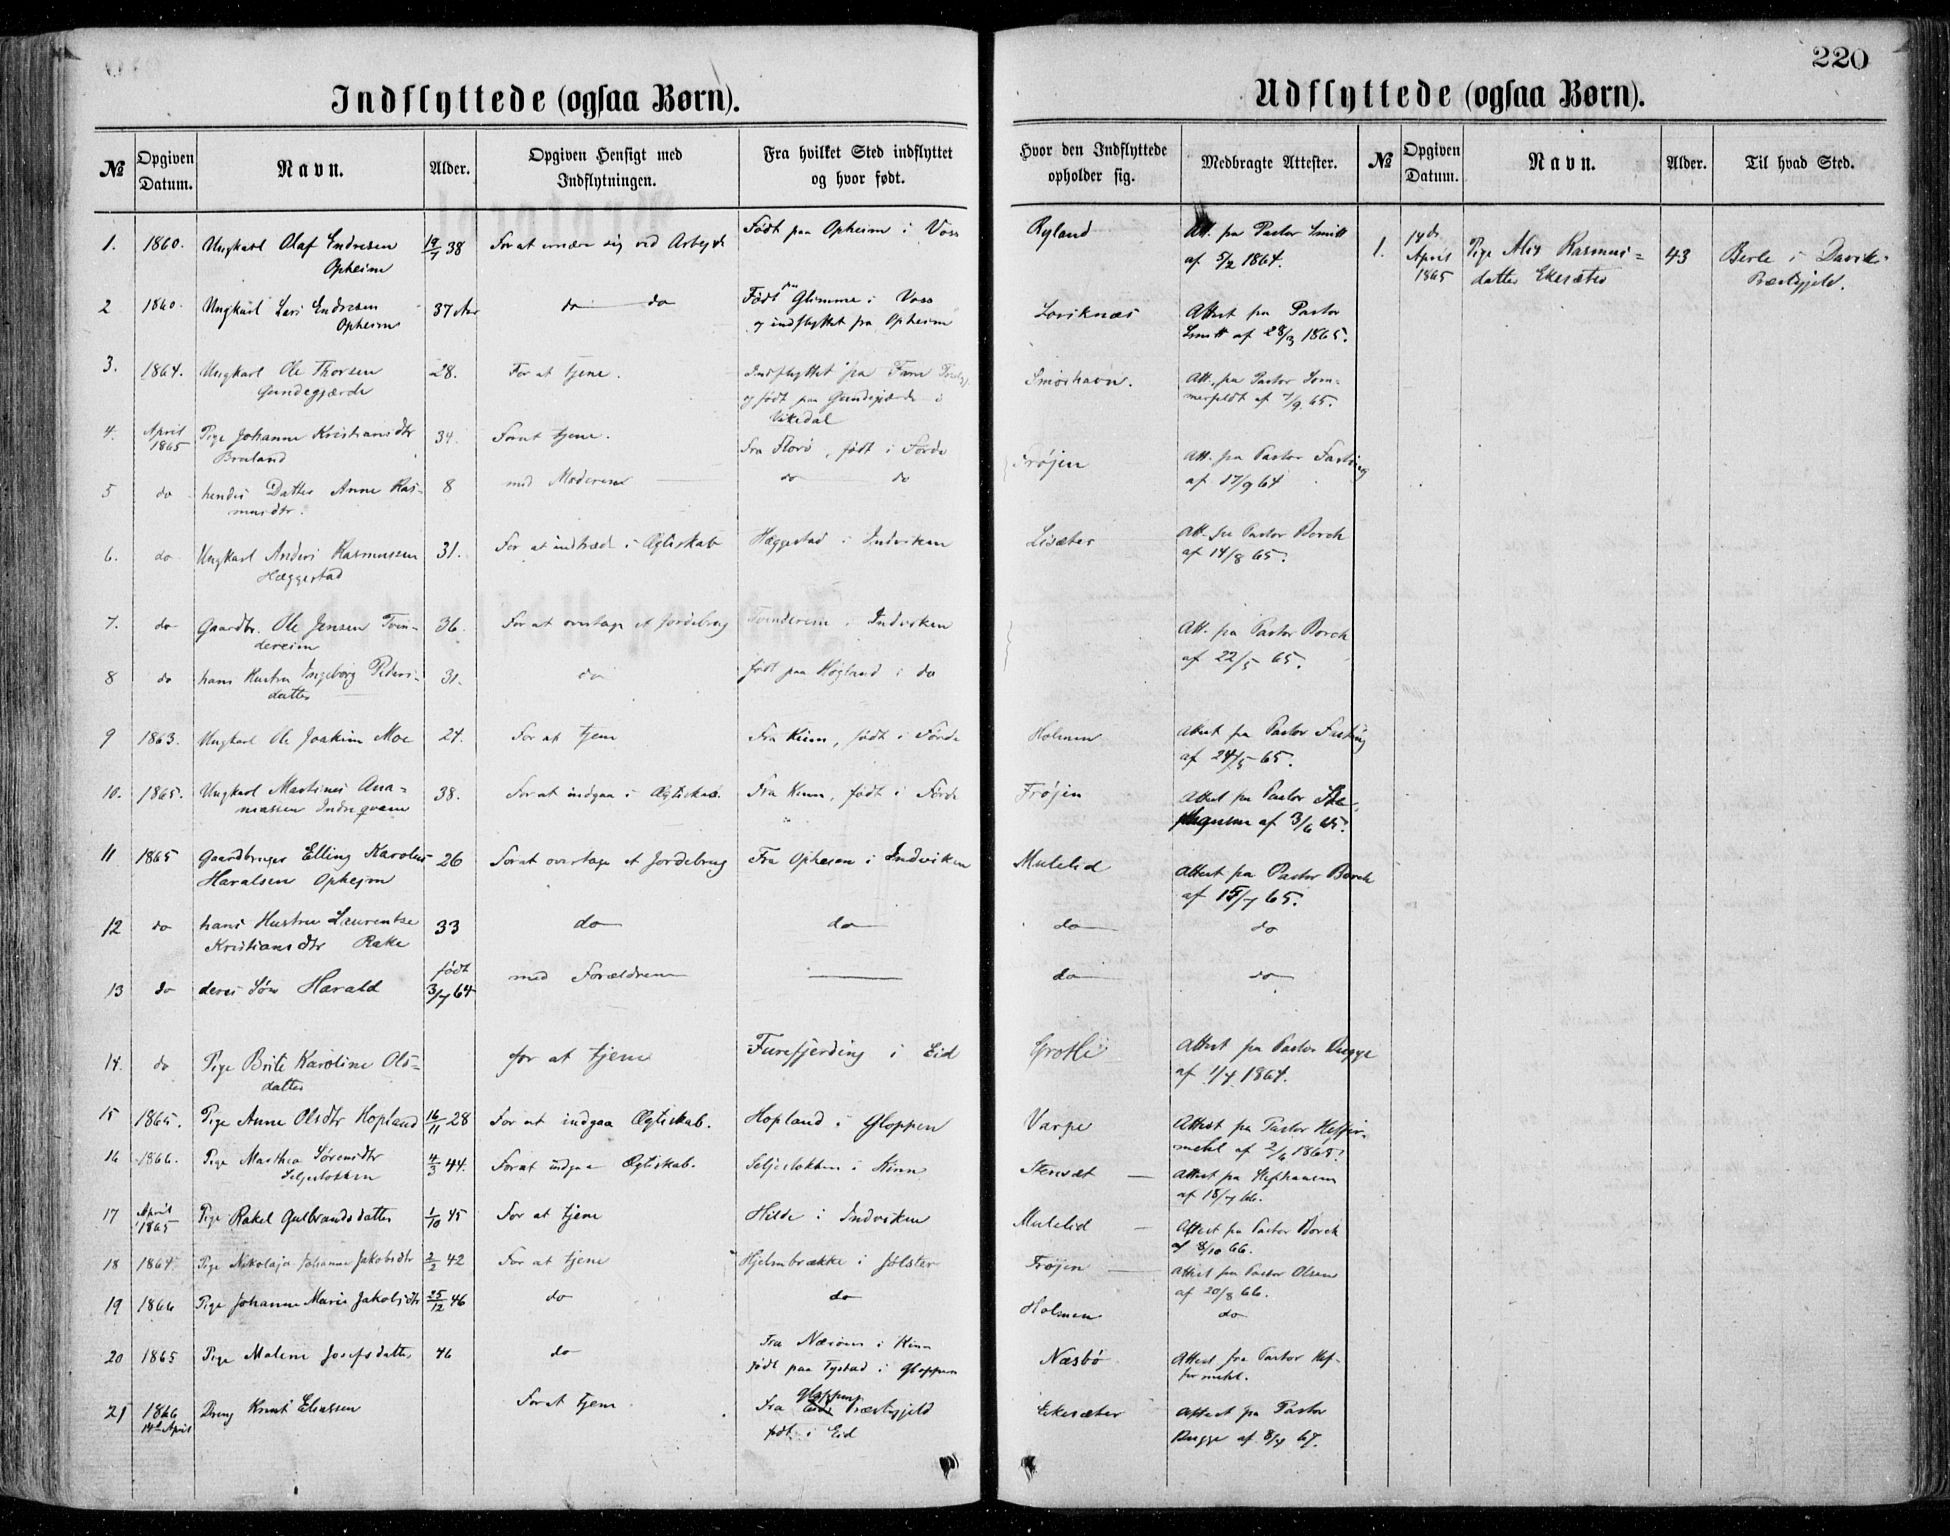 220
Indflyttede (ogsaa Børn).
№ Opgiven Datum. Navn. Alder. Opgiven Hensigt med Indflytningen. Fra hvilket Sted indflyttet og hvor født.
1. 1860. Ungkarl Olaf Endresen 19/7 38 For at ernære sig ved Arbejde Født paa Opheim i Voss
Opheim
2 1860. Ungkarl Lars Endresen 37 Aar do do Født paa Glimme i Voss
Opheim og indflyttet fra Opheim
3. 1864. Ungkarl Ole Thorsen 28. For at tjene. Indflyttet fra
Gundegjærde og født paa Gundegjærde i
Vikedal
4. April 1865 Pige Johanne Kristiansdtr 34. Forat tjene. Fra Florø, født i Førde
Bruland
5 do hendes Datter Anne Ras- 8 med Moderen do do
musdtr.
6. do Ungkarl Anders Rasmussen 31. For at indtræde i Ægteskab Hæggestad i Indviken
Hæggestad
7. do Gaardbr. Ole Jensen Tvin- 36. For at overtage et Jordebrug Tvindereim i Indviken
dereim
8 do hans Hustru Ingeborg Peders- 31. do født paa Høgland i do
datter
9 1863. Ungkarl Ole Joakim Moe 24. For at tjene Fra Kinn, født i Førde
10. 1865. Ungkarl Martines Ana- 38. For at indgaa i Ægteskab. Fra Kinn, født i Førde
niassen Indreqvam
11 1865 Gaardbruger Elling Karolus 26 Forat overtage et Jordebrug Fra Opheim i Indviken
Haralsen Opheim
12 do hans Hustru Laurentse 33 do do
Kristiansdtr Rake
13 do deres Søn Harald født 3/7 64 med Forældrene
14. do Pige Brite Karoline Ols- for at tjene Furefjerding i Eid
datter
15 1865. Pige Anne Olsdtr Hopland 16/11 28 For at indgaa Ægteskab. Hopland i Gloppen
16 1866. Pige Marthea Sørensdtr 4/3 44. Forat indgaa Ægteskab. Seljestokken i Kinn
Seljestokken
17 April 1865 Pige Rakel Gulbrandsdatter 1/10 45 For at tjene Hilde i Indviken
18 1864 Pige Nikolaja Johanne Jakobsdtr 2/2 42 For at tjene Hjelmbrække i Jølster
19 1866 Pige Johanne Marie Jakobsdtr 25/12 46 do do
20 1865 Pige Malene Josefsdatter 46 do Fra Næröen i Kinn
født paa Tystad i Gloppen
21 1866 14de April Dreng Knut Eliassen Forat tjene Fra Gloppens Præstegjeld
født i Eid
Udflyttede (ogsaa Børn).
Hvor den Indflyttede opholder sig. Medbragte Attester. № Opgiven Datum. Navn. Alder. Til hvad Sted.
Ryland Att. fra Pastor Smitt 1. 14de April 1865 Pige Alis Rasmus- 43 Berle i Daviks
af 5/2 1864. datter Ekesæter Præstgjeld.
Loviknæs Attest fra Pastor
Smitt af 28/3 1865.
Smørhavn. Att. fra Pastor Som-
merfeldt af 7/9 65.
Frøjen Att. fra Pastor Fasting
af 17/9 64
Lisæter Att. fra Pastor Borch
af 14/8 65.
Att. fra Pastor Borch
af 22/5 65.
Holmen Attest fra Pastor Fasting
af 24/5 65.
Frøjen Attest fra Pastor Ste-
af 3/6 65.
Mulelid Attest fra Pastor Borch
af 15/7 65.
do do
do do
Grotle Attest fra Pastor Bugge
af 1/4 1864.
Varpe Attest fra Pastor Heffer-
mehl af 2/6 1865.
Stensæt Attest fra Stephansen
af 18/7 66.
Mulelid Attest fra Pastor Borch
af 8/10 66.
Frøjen Attest fra Pastor Olsen
af 20/8 66.
Holmen do
Næsbø Attest fra Pastor Hef-
fermehl.
Ekesæter Attest fra Pastor
Bugge af 8/4 67.